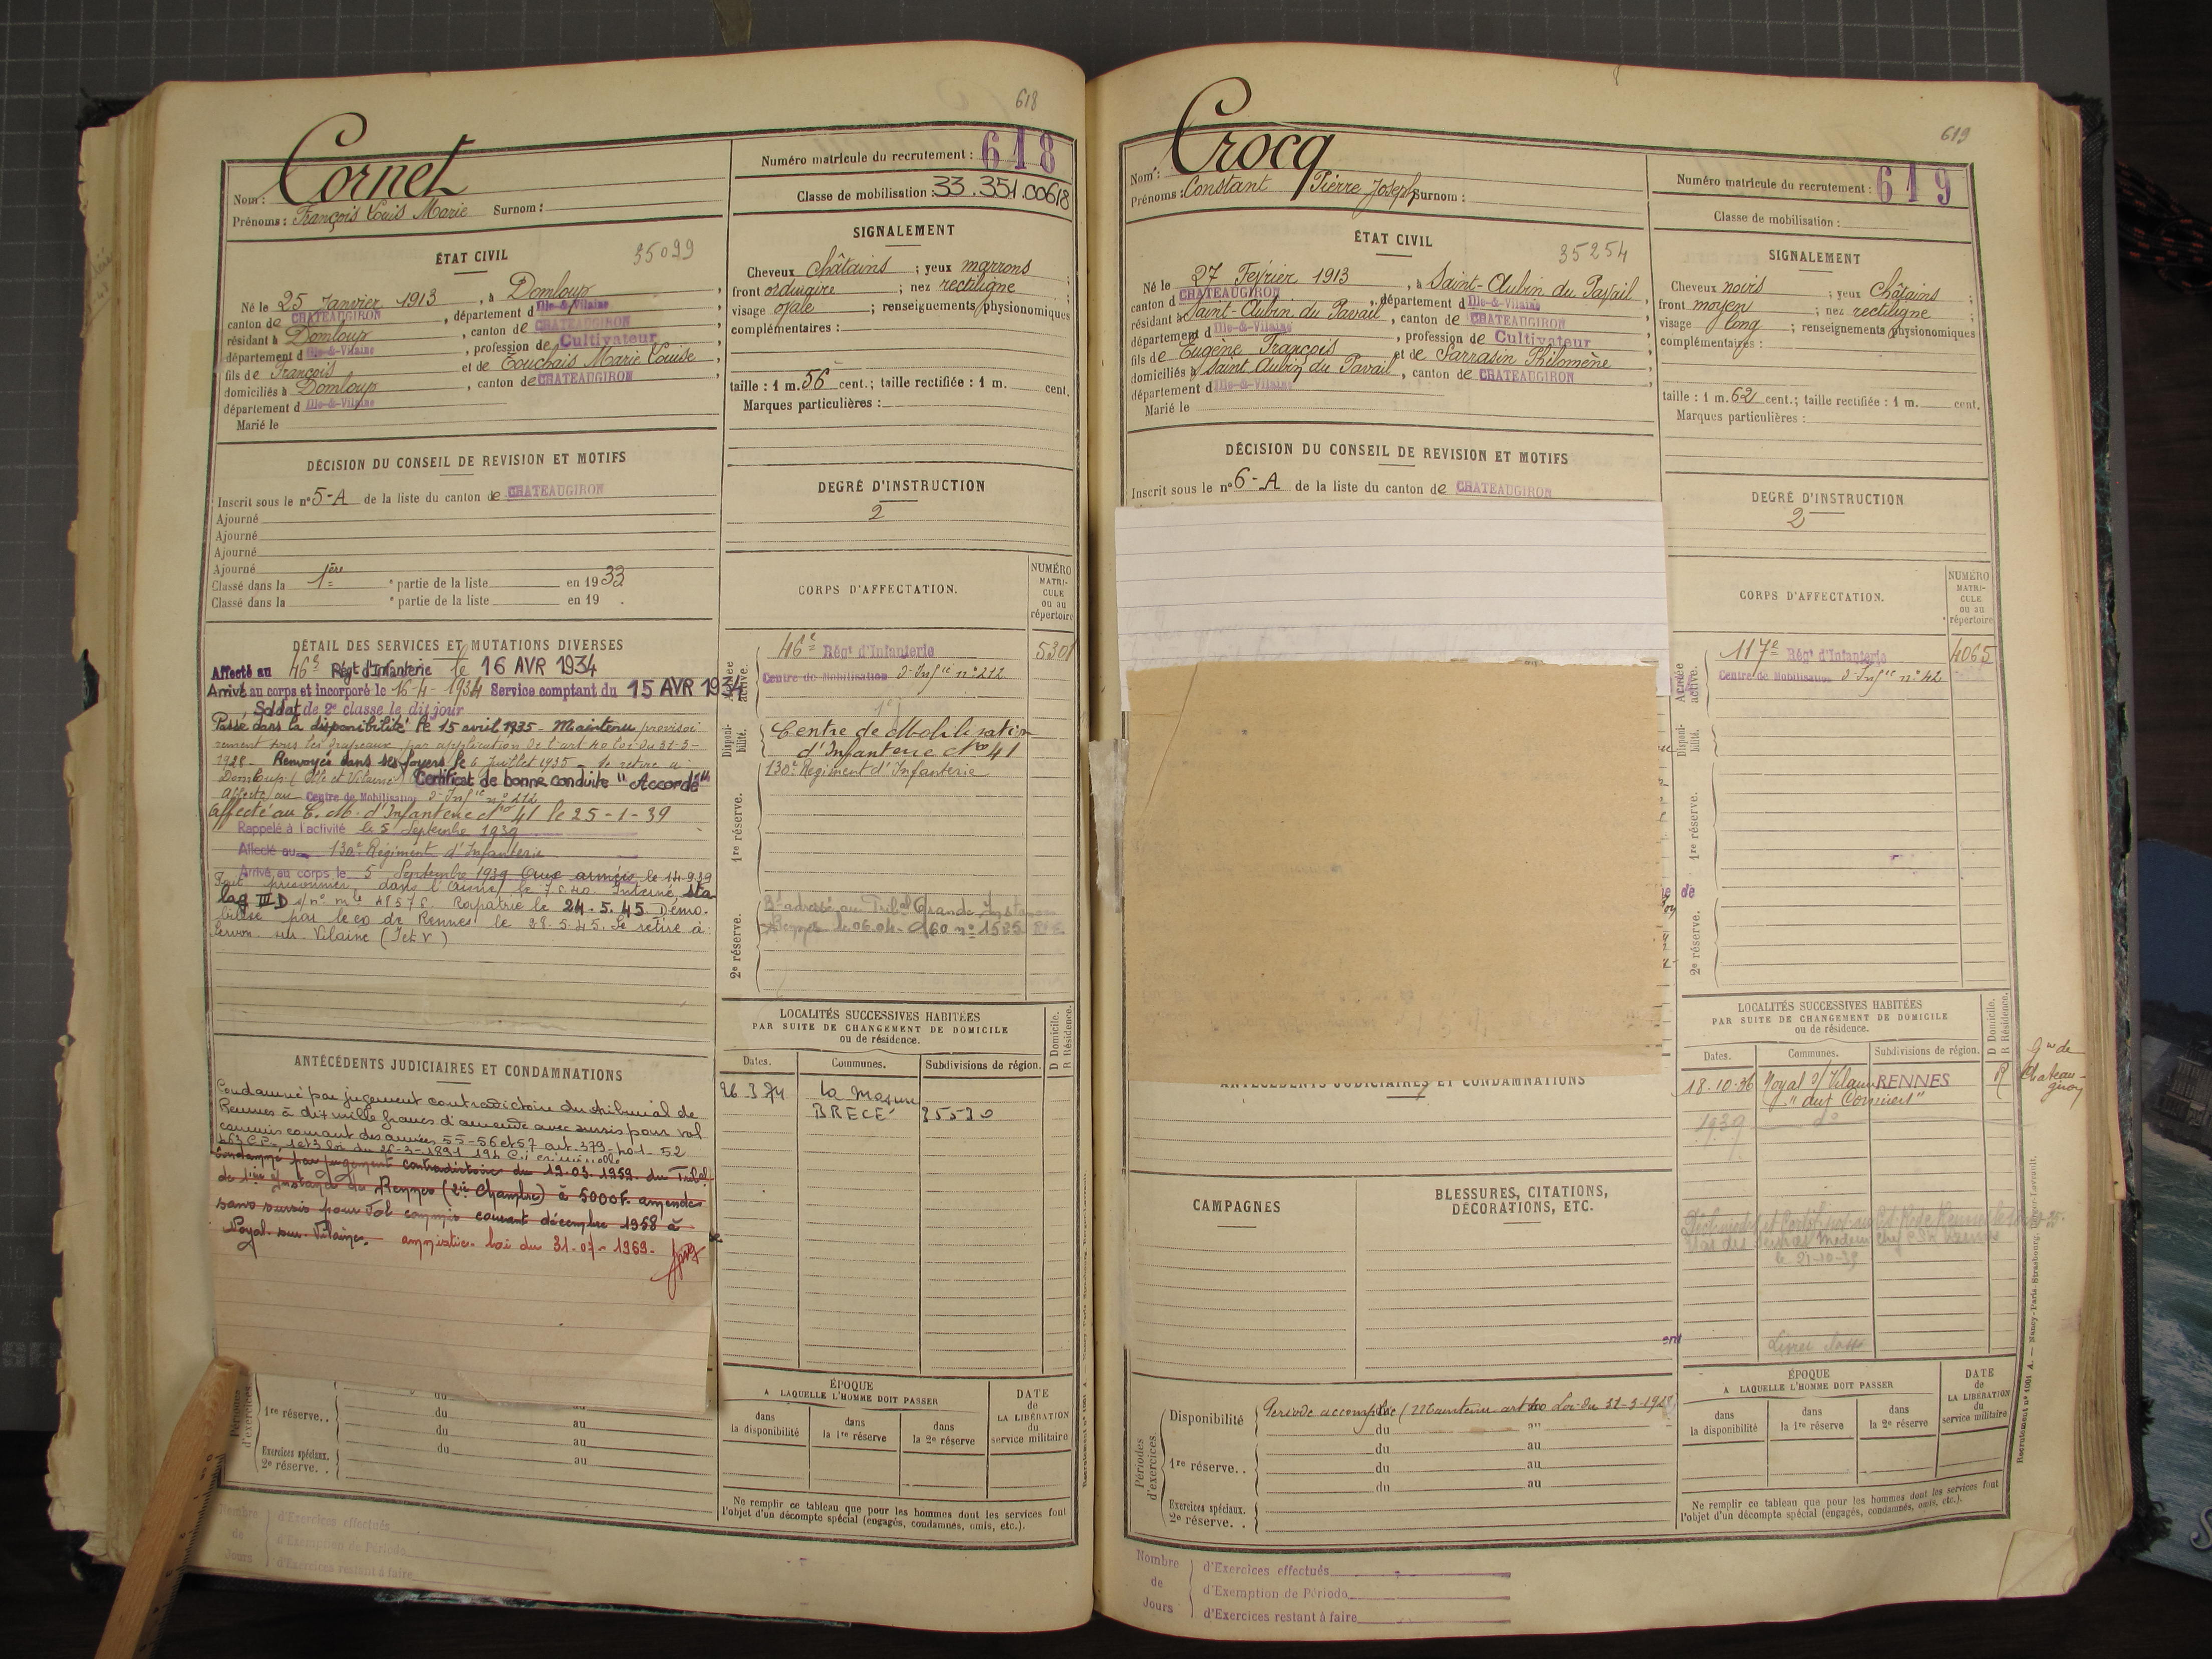 618
Cornet
Nom :
Prénoms : François Louis Marie Surnom :
Numéro matricule du recrutement : 618
Classe de mobilisation : 33.351.00618
ÉTAT CIVIL
35099
Né le 25 Janvier 1913, à Domloup,
canton de CHATEAUGIRON, département d Ille-&-Vilaine
résidant à Domloup, canton de CHATEAUGIRON,
département d Ille-&-Vilaine, profession de Cultivateur
fils de François et de Touchais Marie Louise,
domiciliés à Domloup, canton de CHATEAUGIRON,
département d Ille-&-Vilaine
Marié le
SIGNALEMENT
Cheveux châtains ; yeux marrons ;
front ordinaire ; nez rectiligne ;
visage ovale ; renseignements physionomiques
complémentaires :
taille : 1 m. 56 cent.; taille rectifiée : 1 m. cent.
Marques particulières :
DÉCISION DU CONSEIL DE REVISION ET MOTIFS
Inscrit sous le n° 5-A de la liste du canton de CHATEAUGIRON
Ajourné
Ajourné
Ajourné
Ajourné
Classé dans la 1ère partie de la liste en 1933
Classé dans la e partie de la liste en 19 .
DEGRÉ D'INSTRUCTION
2
DÉTAIL DES SERVICES ET MUTATIONS DIVERSES
Affecté au 46e Régt d'Infanterie le 16 AVR 1934
Arrivé au corps et incorporé le 16-4-1934 Service comptant du 15 AVR 1934
Soldat de 2e classe le dit jour
Passé dans la disponibilité le 15 avril 1935 - Maintenu provisoi
rement sous les drapeaux par application de l'art 40 loi du 31-3-
1928 - Renvoyé dans ses foyers le 6 juillet 1935 - Se retire à
Domloup (Ille et Vilaine) Certificat de bonne conduite "Accordé"
Affecté au Centre de Mobilisation d'Infie n° 212
Affecté au C. M. d'Infanterie No 41 le 25-1-39
Rappelé à l'activité le 5 Septembre 1939
Affecté au 130e Régiment d'Infanterie
Arrivé au corps le 5 Septembre 1939 Aux armées le 14-9-39
Fait prisonnier dans l'Aisne le Interné sta
lag III D s/ n° mle Rapatrié le 24.5.45. Démo.
bilisé par le co de Rennes le 28.5.45. Se retire à
Servon sur Vilaine (I et V)
CORPS D'AFFECTATION.
NUMÉRO MATRICULE ou au répertoire
Armée active.
46e Régt d'Infanterie 5301
Centre de Mobilisation d'Infie n° 212
Disponibilité.
Centre de Mobilisation
d'Infanterie No 41
130e Régiment d'Infanterie
1re réserve.
2e réserve.
adressé au Tribal Grande Instance
Rennes le 06.04. n° 1525
ANTÉCÉDENTS JUDICIAIRES ET CONDAMNATIONS
Condamné par jugement contradictoire du tribunal de
Rennes à dix mille francs d'amende avec sursis pour vol
commis courant des années 55-56 et 57 art. 379-401-52
463 C.P. 1 et 3 loi du 26-3-1891 194 C. i criminelle
Condamné par jugement contradictoire du 19.03.1959 du Tribal
de Instance de Rennes (2è Chambre) à 5000f. amende
sans sursis pour vol commis courant décembre 1958 à
Noyal-sur-Vilaine. amnistie. loi du 31-07-1969.
LOCALITÉS SUCCESSIVES HABITÉES
PAR SUITE DE CHANGEMENT DE DOMICILE
ou de résidence.
Dates. Communes. Subdivisions de région. D Domicile. R Résidence.
26.3.74 La Masure
BRECÉ 35530
Périodes d'exercices
1re réserve..
du au
du au
du au
Exercices spéciaux.
2e réserve. . du au
ÉPOQUE
A LAQUELLE L'HOMME DOIT PASSER
dans la disponibilité
dans la 1re réserve
dans la 2e réserve
DATE de LA LIBÉRATION du service militaire
Ne remplir ce tableau que pour les hommes dont les services font
l'objet d'un décompte spécial (engagés, condamnés, omis, etc.).
Nombre de Jours
d'Exercices effectués
d'Exemption de Période
d'Exercices restant à faire
619
Crocq
Nom :
Prénoms : Constant Pierre Joseph Surnom :
Numéro matricule du recrutement : 619
Classe de mobilisation :
ÉTAT CIVIL
35254
Né le 27 Février 1913, à Saint-Aubin du Pavail,
canton d CHATEAUGIRON, département d Ille-&-Vilaine
résidant à Saint-Aubin du Pavail, canton de CHATEAUGIRON,
département d Ille-&-Vilaine, profession de Cultivateur
fils de Eugène François et de Sarrasin Philomène,
domiciliés à Saint Aubin du Pavail, canton de CHATEAUGIRON,
département d Ille-&-Vilaine
Marié le
SIGNALEMENT
Cheveux noirs ; yeux châtains ;
front moyen ; nez rectiligne ;
visage long ; renseignements physionomiques
complémentaires :
taille : 1 m. 62 cent.; taille rectifiée : 1 m. cent.
Marques particulières :
DÉCISION DU CONSEIL DE REVISION ET MOTIFS
Inscrit sous le n° 6-A de la liste du canton de CHATEAUGIRON
DEGRÉ D'INSTRUCTION
2
CORPS D'AFFECTATION.
NUMÉRO MATRICULE ou au répertoire
Armée active.
117e Régt d'Infanterie 4065
Centre de Mobilisation d'Infie n° 42
Disponibilité.
1re réserve.
2e réserve.
ANTÉCÉDENTS JUDICIAIRES ET CONDAMNATIONS
LOCALITÉS SUCCESSIVES HABITÉES
PAR SUITE DE CHANGEMENT DE DOMICILE
ou de résidence.
Dates. Communes. Subdivisions de région. D Domicile. R Résidence.
18.10.36 Noyal s/ Vilaine RENNES R
1939 do
CAMPAGNES
BLESSURES, CITATIONS, DÉCORATIONS, ETC.
Périodes d'exercices.
Disponibilité Période accomplie (Maintenu art 40 Loi du 31-3-1928)
du au
1re réserve..
du au
du au
du au
Exercices spéciaux.
2e réserve. .
ÉPOQUE
A LAQUELLE L'HOMME DOIT PASSER
dans la disponibilité
dans la 1re réserve
dans la 2e réserve
DATE de LA LIBÉRATION du service militaire
Ne remplir ce tableau que pour les hommes dont les services font
l'objet d'un décompte spécial (engagés, condamnés, omis, etc.).
Nombre de Jours
d'Exercices effectués
d'Exemption de Période
d'Exercices restant à faire